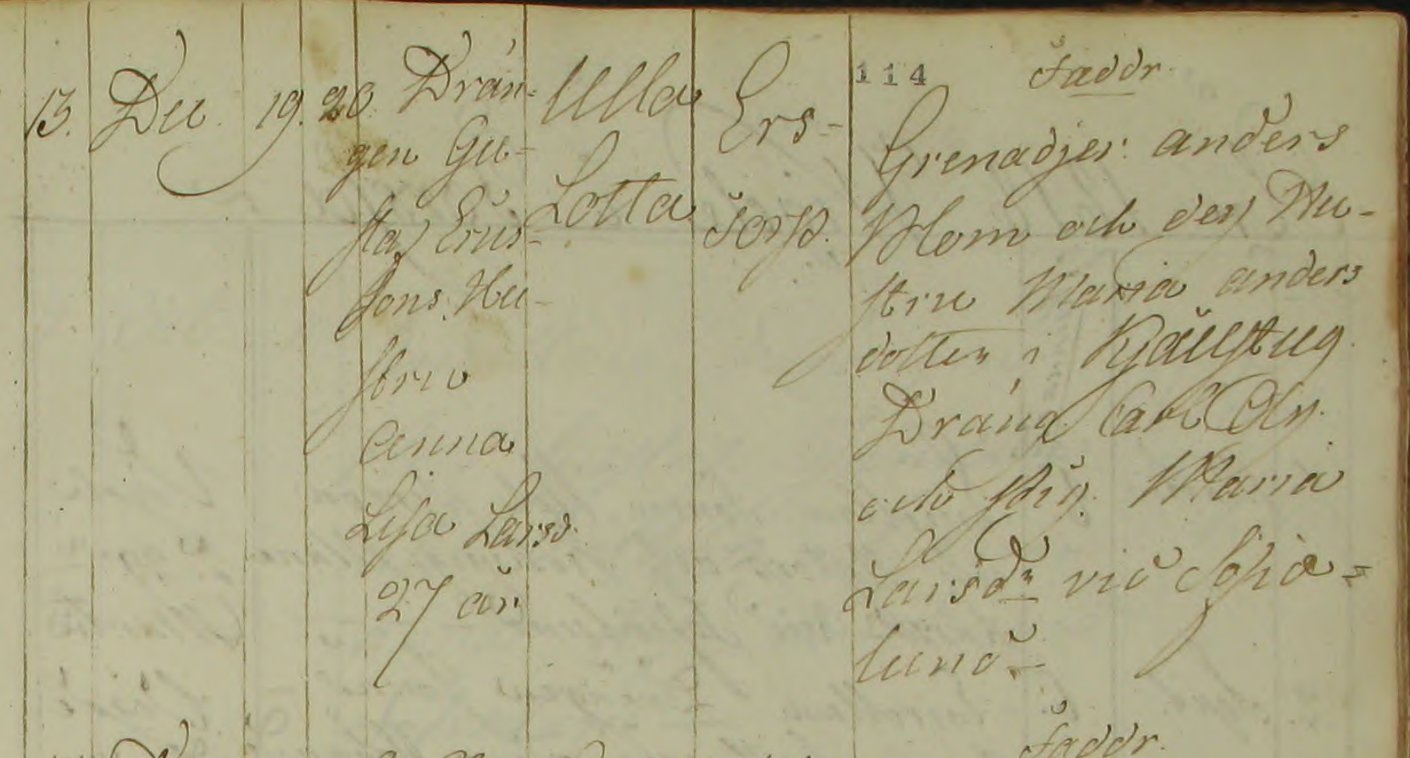 13. Dec 19. 20. Drän-
gen Gu-
staf Erics-
sons Hu-
stru
Anna
Lisa Larsd.
27 år
Ulla
Lotta
Ers-
torp.
114
Faddr.
Grenadjer Anders
Blom och dess Hu-
stru Maria Anders
dotter i Kjällstug
Dräng Carl
och Pig. Maria
Larsdr vid Sofia=
lund
Faddr.